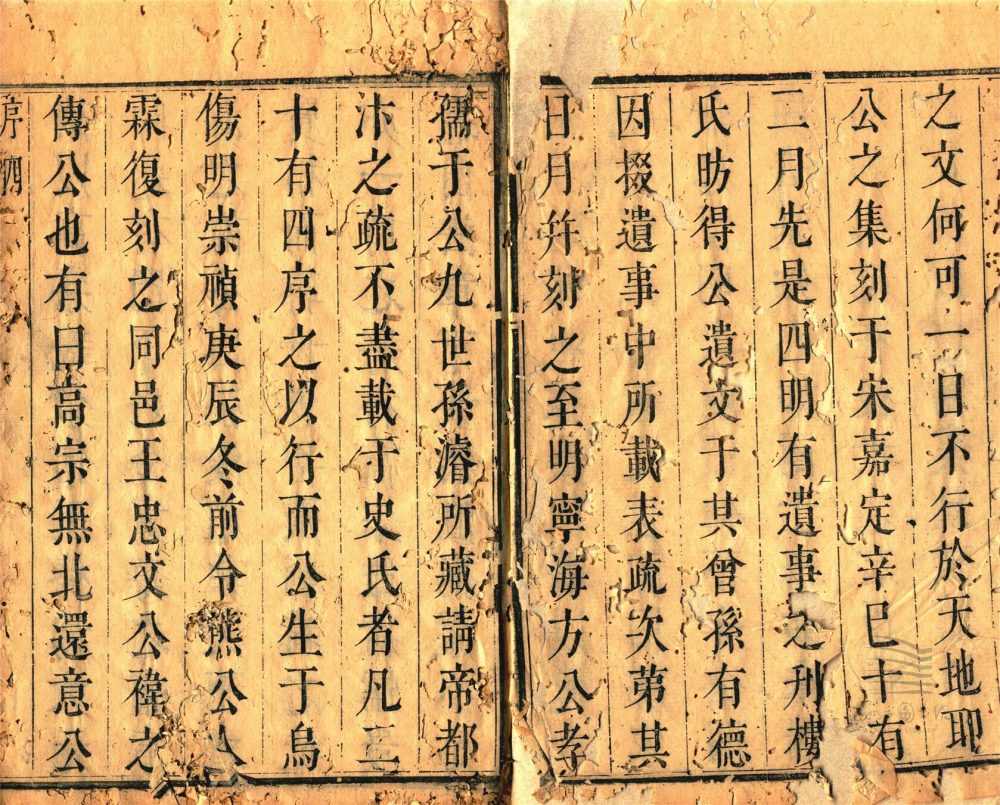 之文何可一日不行於天地耶
公之集刻于宋嘉定辛巳十有
二月先是四明有遺事之刋樓
氏昉得公遺文于其曾孫有德
因掇遺事中所載表疏次第其
日月幷刻之至明寧海方公孝
孺于公九世孫濬所藏請帝都
汴之疏不盡載于史氏者凡二
十有四序之以行而公生于烏
傷明崇禎庚辰冬前令熊公人
霖復刻之同邑王忠文公褘之
傳公也有曰高宗無北還意公
序